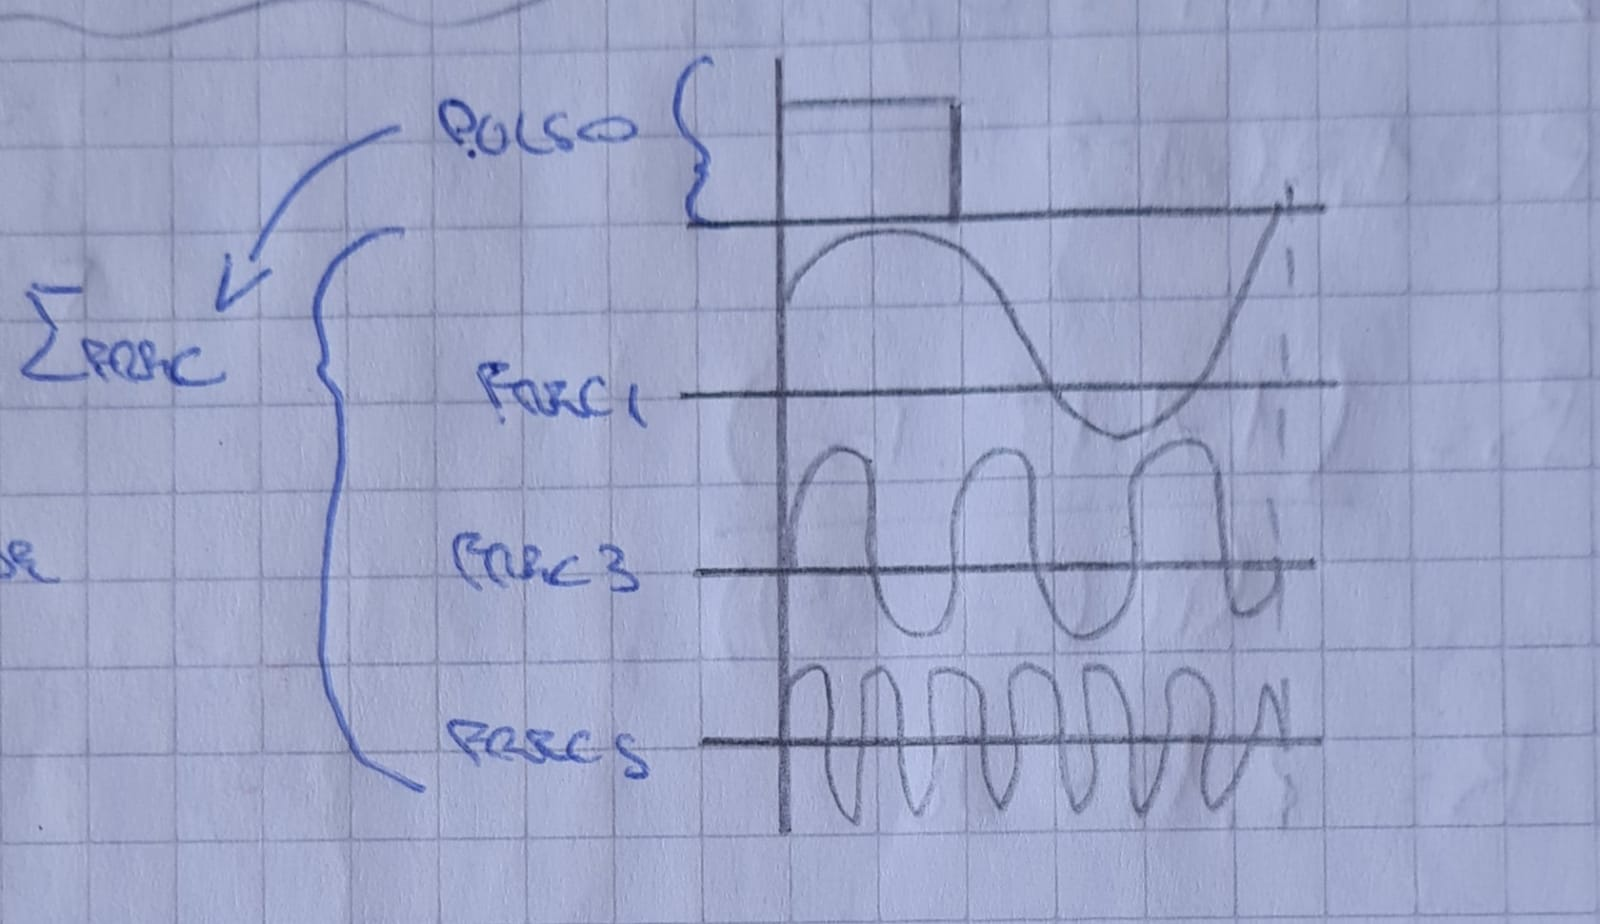 PULSO
ΣFREC
FREC1
FREC 3
FREC 5